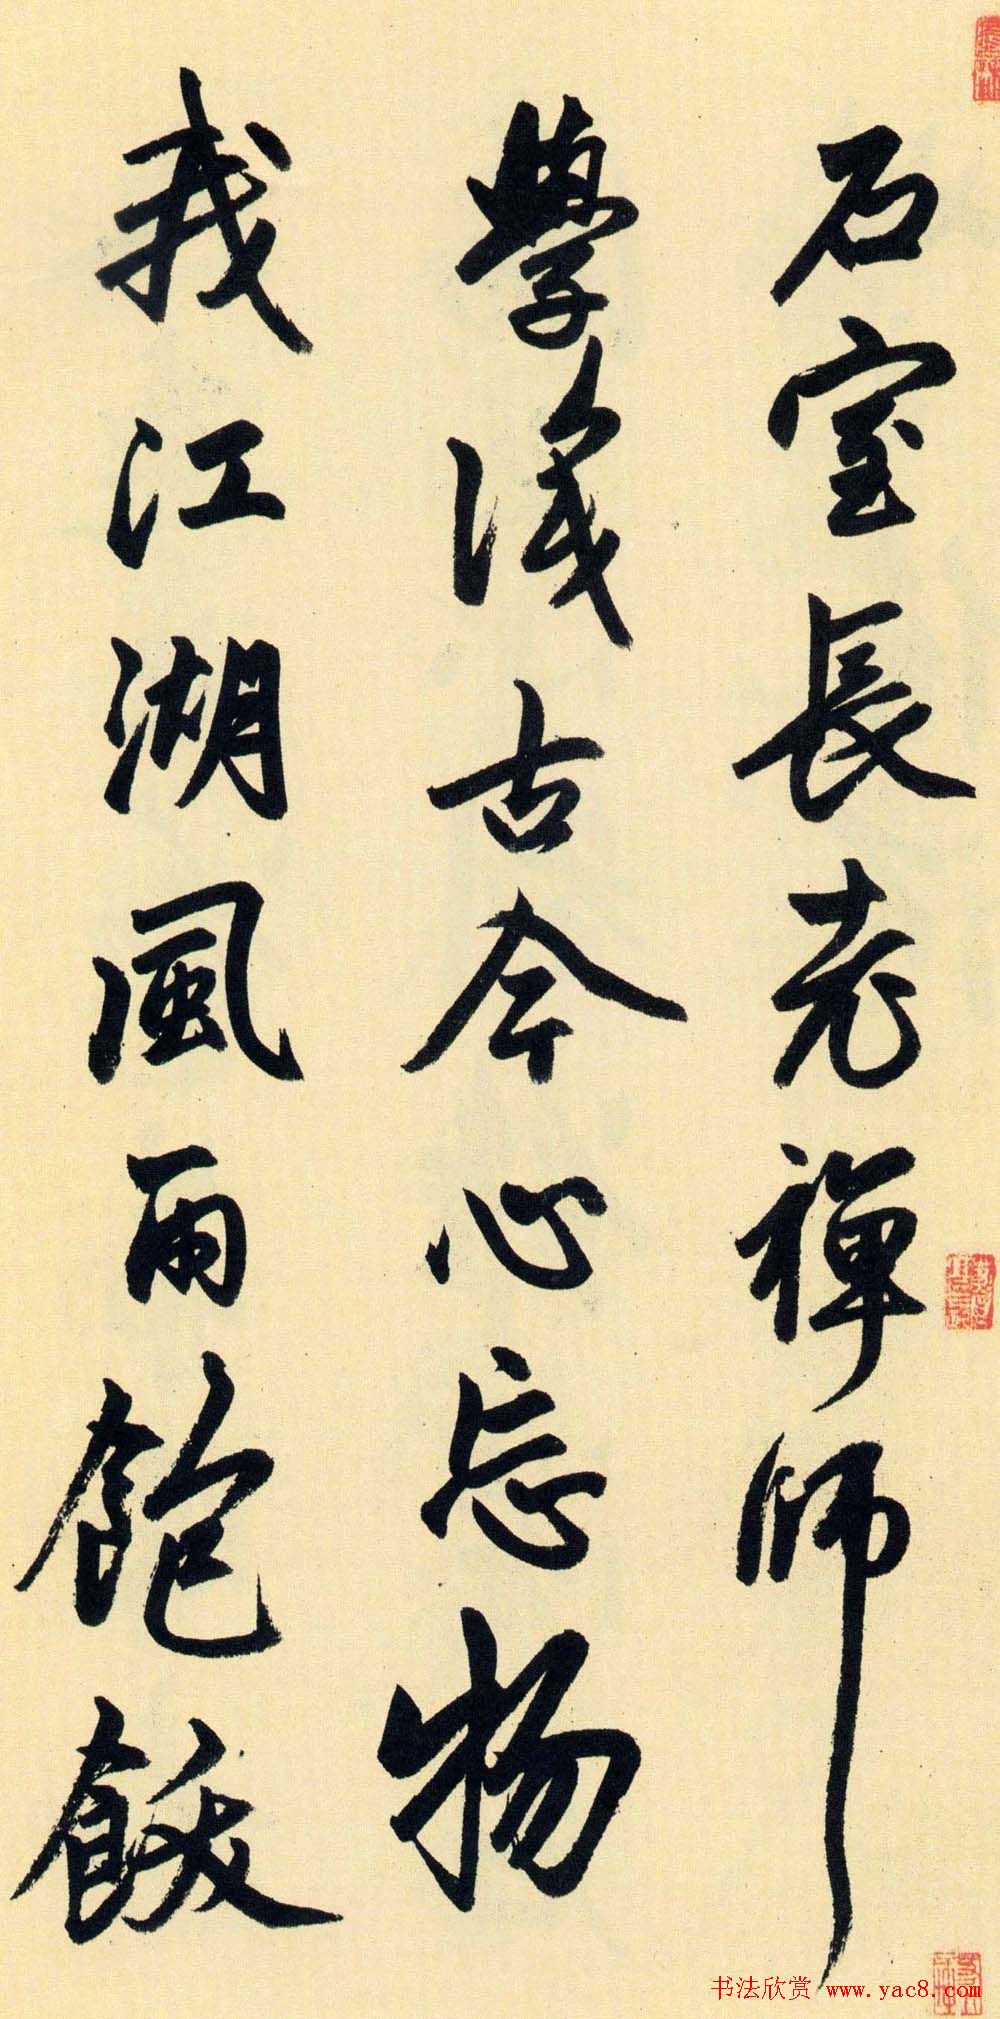 石室長老禪師
學識古今心忘物
我江湖風雨飽
书法欣赏 www.yac8.com